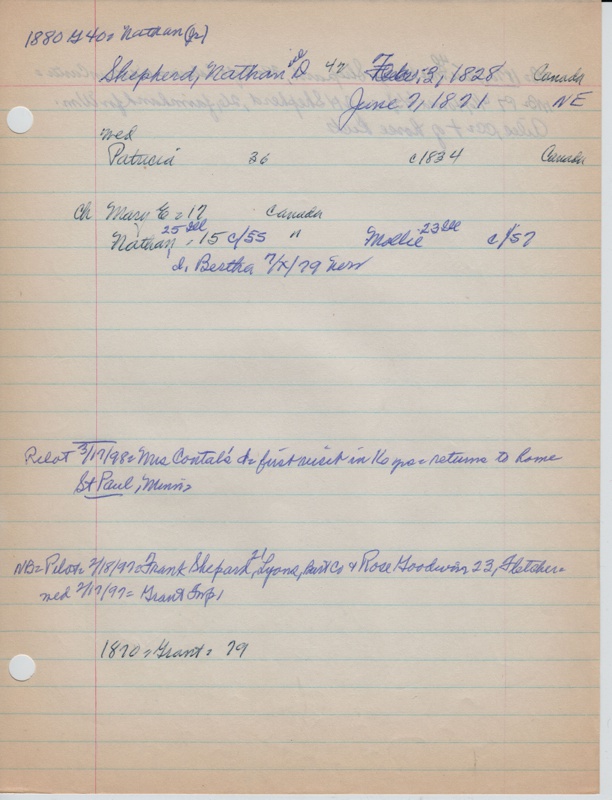 1880 G 40 = Nathan (Jr)
Shepherd, Nathan D 47 Febr. 2, 1828 Canada
June 7, 1871 NE
wed
Patricia 36 c1834 Canada
Ch Mary E = 17 Canada
25 Ill 23 Ill
Nathan = 15 c/55 " Mollie c/57
d. Bertha 7/X/79 new
Pilot 3/17/98 = Mrs Contal's d = first visit in 16 yrs = returns to home
St Paul, Minn =
NB = Pilot = 2/18/97 = Frank Shepard, 21 Lyons, Burt Co & Rose Goodwin 23, Fletcher =
wed 2/17/97 = Grant Twp 1
1870 = Grant = 79